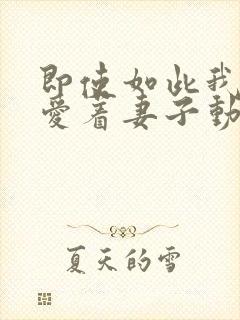 即使如此我
愛着妻子動
夏天的雪